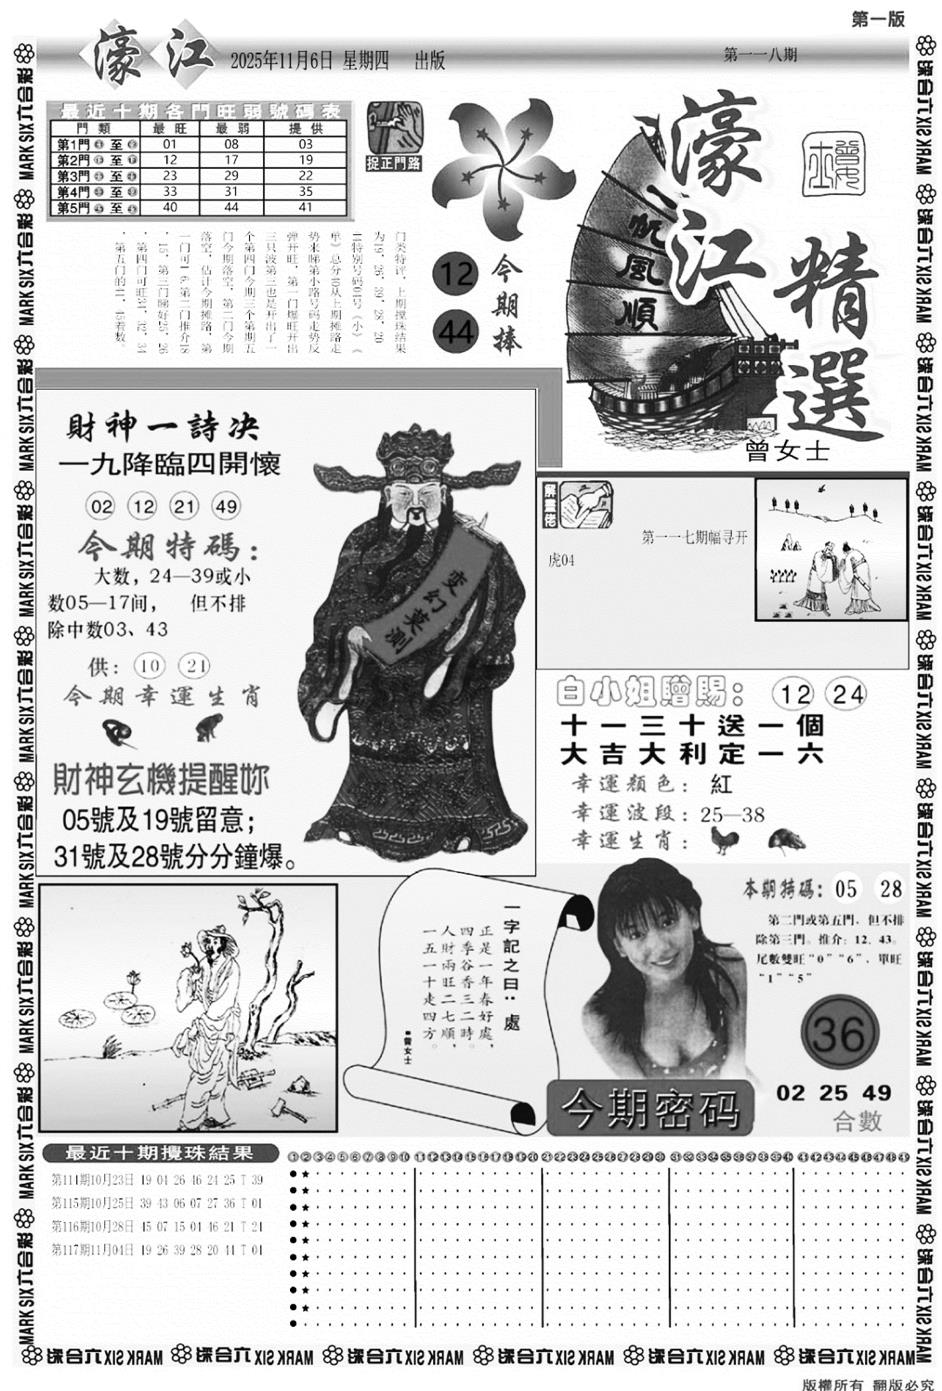 第一版
濠江
2025年11月6日 星期四 出版
第一一八期
最近十期各門旺弱號碼表
門類 最旺 最弱 提供
第1門 至 01 08 03
第2門 至 12 17 19
第3門 至 23 29 22
第4門 至 33 31 35
第5門 至 40 44 41
捉正門路
12
44
今期捧
濠江精選
一帆風順
曾女士
门类特评，上期搅珠结果
为19、26、39、28、20
44特别号码01号（小）（
单）总分10从上期摊路走
势来睇第小路号码走势反
弹开旺，第一门爆旺开出
三只波第三也是开出了一
个第四门今期三个第期五
门今期落空，第二门今期
落空，估计今期摊路，第
一门可1 6.第二门推介18
，15，第三门睇好25，26
，第四门可旺31，32，34
，第五门的41，45着数。
財神一詩决
一九降臨四開懷
02 12 21 49
今期特碼：
大数，24—39或小
数05—17间， 但不排
除中数03、43
供：10 21
今期幸運生肖
財神玄機提醒妳
05號及19號留意；
31號及28號分分鐘爆。
变幻莫測
解畫佬
第一一七期幅寻开
虎04
白小姐贈賜：12 24
十一三十送一個
大吉大利定一六
幸運顏色：紅
幸運波段：25—38
幸運生肖：
一字記之曰：處
正是一年春好處，
四季谷香三二時。
人財兩旺二七順，
一五一十走四方。
■曾女士
本期特碼：05 28
第二門或第五門，但不排
除第三門。推介：12、43。
尾數雙旺“0”“6”，單旺
“1”“5”
36
今期密码
02 25 49
合數
最近十期攪珠結果
第114期10月23日 19 04 26 46 24 25 T 39
第115期10月25日 39 43 06 07 27 36 T 01
第116期10月28日 45 07 15 04 46 21 T 24
第117期11月04日 19 26 39 28 20 44 T 01
①②③④⑤⑥⑦⑧⑨⑩⑪⑫⑬⑭⑮⑯⑰⑱⑲⑳㉑㉒㉓㉔㉕㉖㉗㉘㉙㉚㉛㉜㉝㉞㉟㊱㊲㊳㊴㊵㊶㊷㊸㊹㊺㊻㊼㊽㊾
MARK SIX六合彩
版權所有 翻版必究